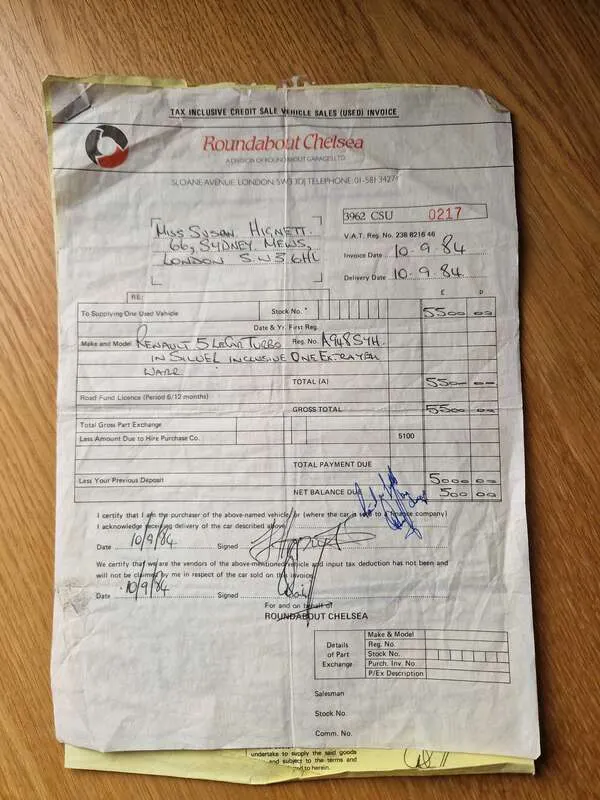 TAX INCLUSIVE CREDIT SALE VEHICLE SALES (USED) INVOICE
Roundabout Chelsea
A DIVISION OF ROUNDABOUT GARAGES LTD
SLOANE AVENUE, LONDON SW3 3DJ TELEPHONE: 01-581 3427
3962 CSU 0217
MISS SUSAN HIGNETT.
66, SYDNEY MEWS,
LONDON S.W3 6HL
V.A.T. Reg. No. 238 6216 46
Invoice Date 10.9.84
Delivery Date 10.9.84.
RE:
£ D
To Supplying One Used Vehicle Stock No. 5500 00
Date & Yr. First Reg.
Make and Model RENAULT 5 LE CAR TURBO Reg. No. A948 SYH.
IN SILVER INCLUSIVE ONE EXTRA YEAR
WARR
TOTAL (A) 5500 00
Road Fund Licence (Period 6/12 months)
GROSS TOTAL 5500 00
Total Gross Part Exchange
Less Amount Due to Hire Purchase Co. 5100
TOTAL PAYMENT DUE
Less Your Previous Deposit 5000 00
NET BALANCE DUE 500 00
I certify that I am the purchaser of the above-named vehicle/or (where the car is sold to a finance company)
I acknowledge receiving delivery of the car described above.
Date 10/9/84. Signed
We certify that we are the vendors of the above-mentioned vehicle and input tax deduction has not been and
will not be claimed by me in respect of the car sold on this invoice.
Date 10/9/84 Signed
For and on behalf of
ROUNDABOUT CHELSEA
Details
of Part
Exchange
Make & Model
Reg. No.
Stock No.
Purch. Inv. No
P/Ex Description
Salesman
Stock No.
Comm. No.
undertake to supply the said goods
and subject to the terms and
to herein.